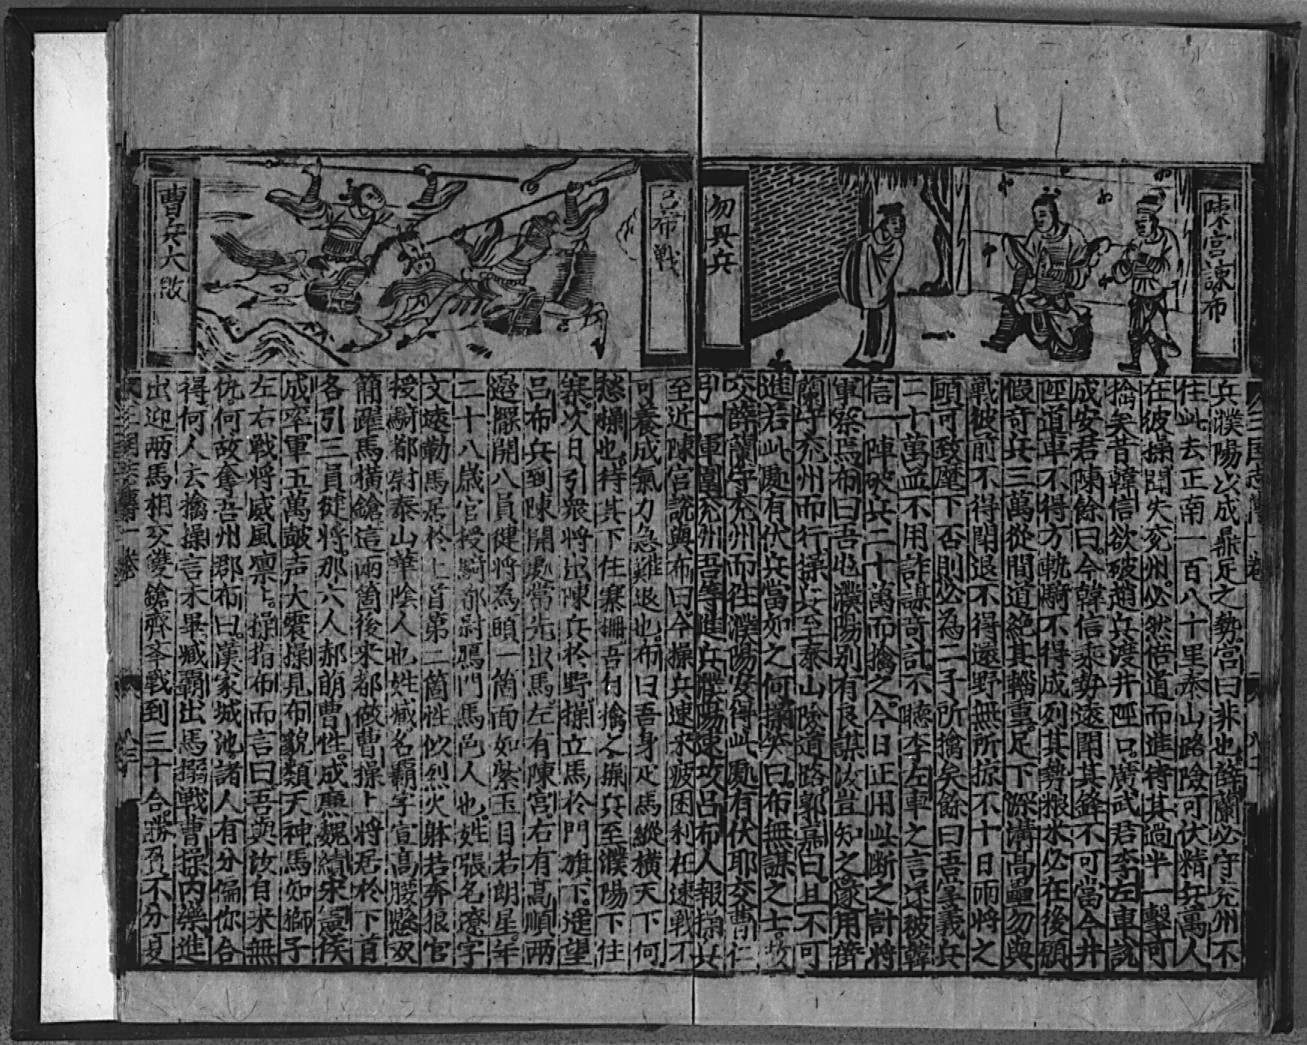 陳宮諫布
勿與兵
兵濮陽以成鼎足之勢宮曰非也薛蘭必守兖州不
住此去正南一百八十里泰山路險可伏精兵萬人
在彼操聞失兖州必然倍道而進待其過半一擊可
擒矣昔韓信欲破趙兵渡井陘口廣武君李左車說
成安君陳餘曰今韓信乘勢遠閗其鋒不可當今井
陘道車不得方軌騎不得成列其勢粮水必在後願
假奇兵三萬從間道絕其輜重足下深溝高壘勿與
戰彼前不得閗退不得還野無所掠不十日両將之
頭可致麾下否則必為二子所擒矣餘曰吾掌義兵
二十萬並不用詐謀奇計不聽李左車之言遂被韓
信一陣破兵二十萬而擒之今日正用此断之計將
軍祭焉布曰吾屯濮陽別有良謀汝豈知之遂用薛
蘭守兖州而行操兵至泰山險道路郭嘉曰且不可
進若此處有伏兵當如之何操笑曰布無謀之士故
交薛蘭守兖州而往濮陽安得此處有伏耶交曹仁
引一軍圍兖州吾等進兵濮陽速攻呂布人報操兵
至近陳宮說與布曰今操兵速來疲困利在速戰不
可養成氣力急難退也布曰吾身疋馬縱橫天下何
愁操也待其下住寨柵吾自擒之操兵至濮陽下住
寨次日引眾將出陳兵於野操立馬於門旗下遙望
呂布兵到陳開處當先出馬左有陳宮右有高順兩
邊擺開八員健將為頭一箇面如繫玉目若朗星年
二十八歲官授騎都尉鴈門馬邑人也姓張名遼字
文遠勒馬居於上首第二箇性似烈火躰若奔狼官
授騎都尉泰山華陰人也姓臧名霸字宣高腰懸双
簡躍馬橫鎗這兩箇後來都做曹操上將居於下首
各引三員徤將那六人郝萌曹性成廉魏續宋憲侯
成率軍五萬皷声大震操見布貌類天神馬如獅子
左右戰將威風凛上操指布而言曰吾與汝自來無
仇何故奪吾州郡布曰漢家城池諸人有分偏你合
得何人去擒操言未畢臧霸出馬搦戰曹操內樂進
出迎両馬相交雙鎗齊峯戰到三十合勝負不分夏
呂布戰
曹兵大敗